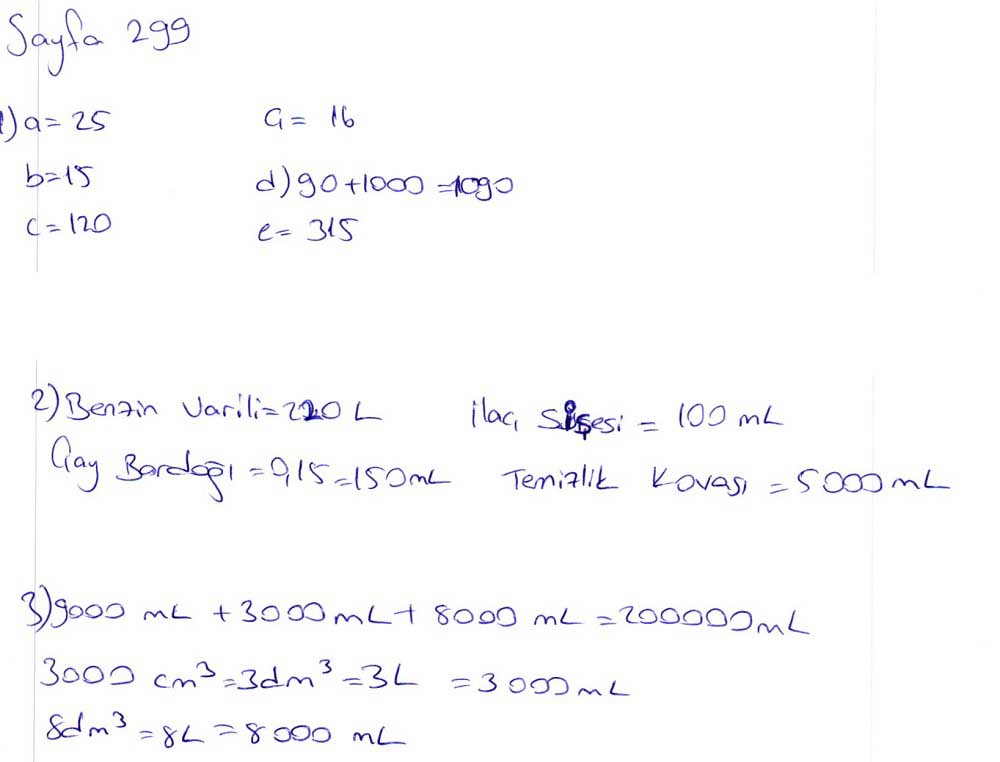 Sayfa 299
1) a = 25 Ç = 16
b = 15 d) 90 + 1000 = 1090
c = 120 e = 315
2) Benzin Varili = 220 L İlaç Şişesi = 100 mL
Çay Bardağı = 0,15 = 150 mL Temizlik Kovası = 5000 mL
3) 9000 mL + 3000 mL + 8000 mL = 200000 mL
3000 cm³ = 3dm³ = 3L = 3000 mL
8dm³ = 8L = 8000 mL